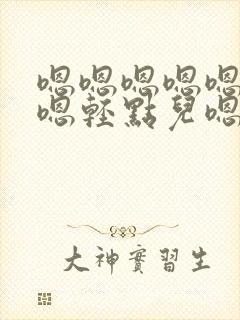 嗯嗯嗯嗯嗯
嗯輕點兒嗯
大神實習生